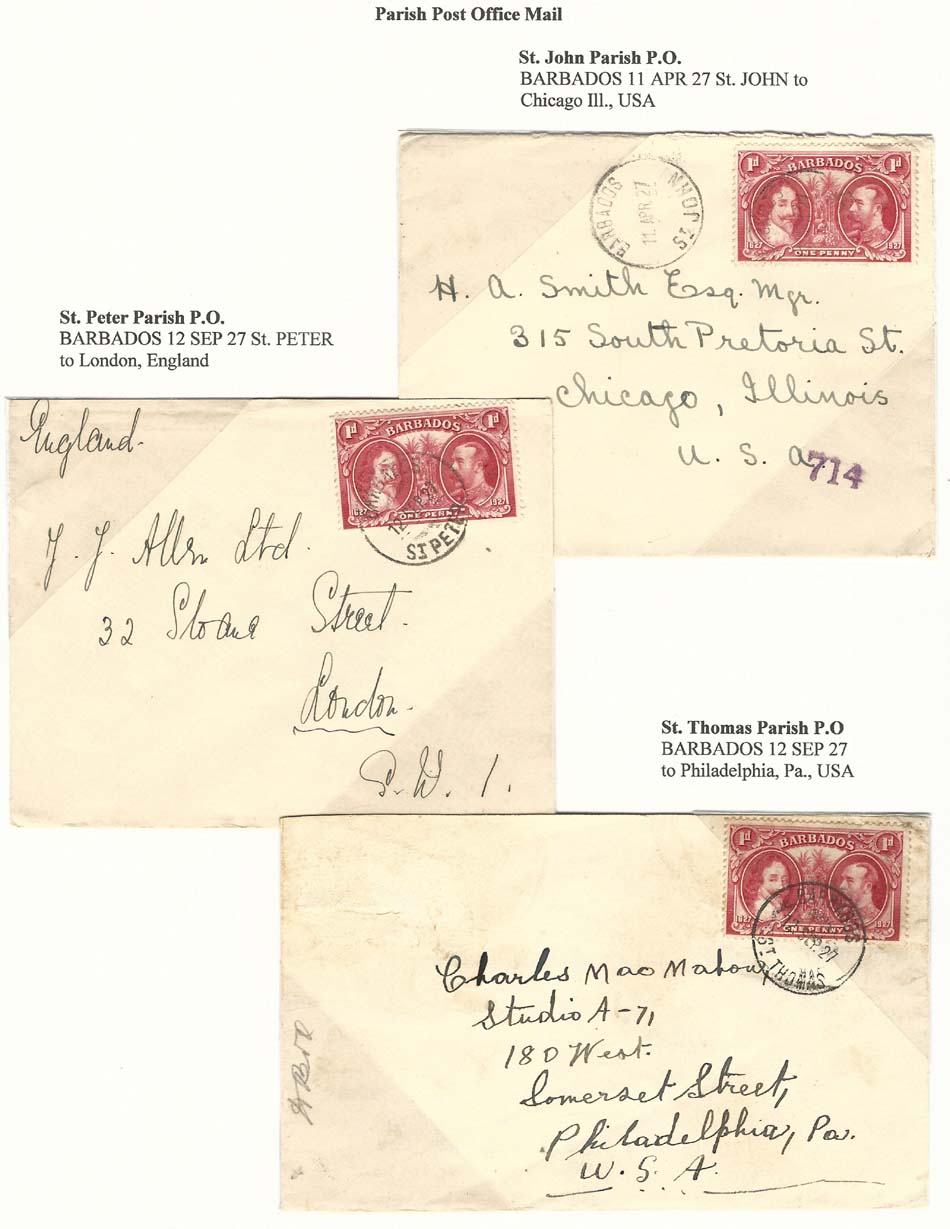 Parish Post Office Mail
St. John Parish P.O.
BARBADOS 11 APR 27 St. JOHN to
Chicago Ill., USA
BARBADOS
11. APR. 27
ST JOHN
1d BARBADOS 1d
1627 ONE PENNY 1927
H. A. Smith Esq. Mgr.
315 South Pretoria St.
Chicago, Illinois
U. S. a
714
St. Peter Parish P.O.
BARBADOS 12 SEP 27 St. PETER
to London, England
England-
1d BARBADOS 1d
1627 ONE PENNY 1927
ST PETER
J. J. Allen Ltd.
32 Sloane Street.
London.
S. W. 1.
St. Thomas Parish P.O
BARBADOS 12 SEP 27
to Philadelphia, Pa., USA
1d BARBADOS 1d
1627 ONE PENNY 1927
BARBADOS
SP. 27
ST THOMAS
Charles Mac Mahon
Studio A-71
180 West.
Somerset Street,
Philadelphia, Pa.
U. S. A.